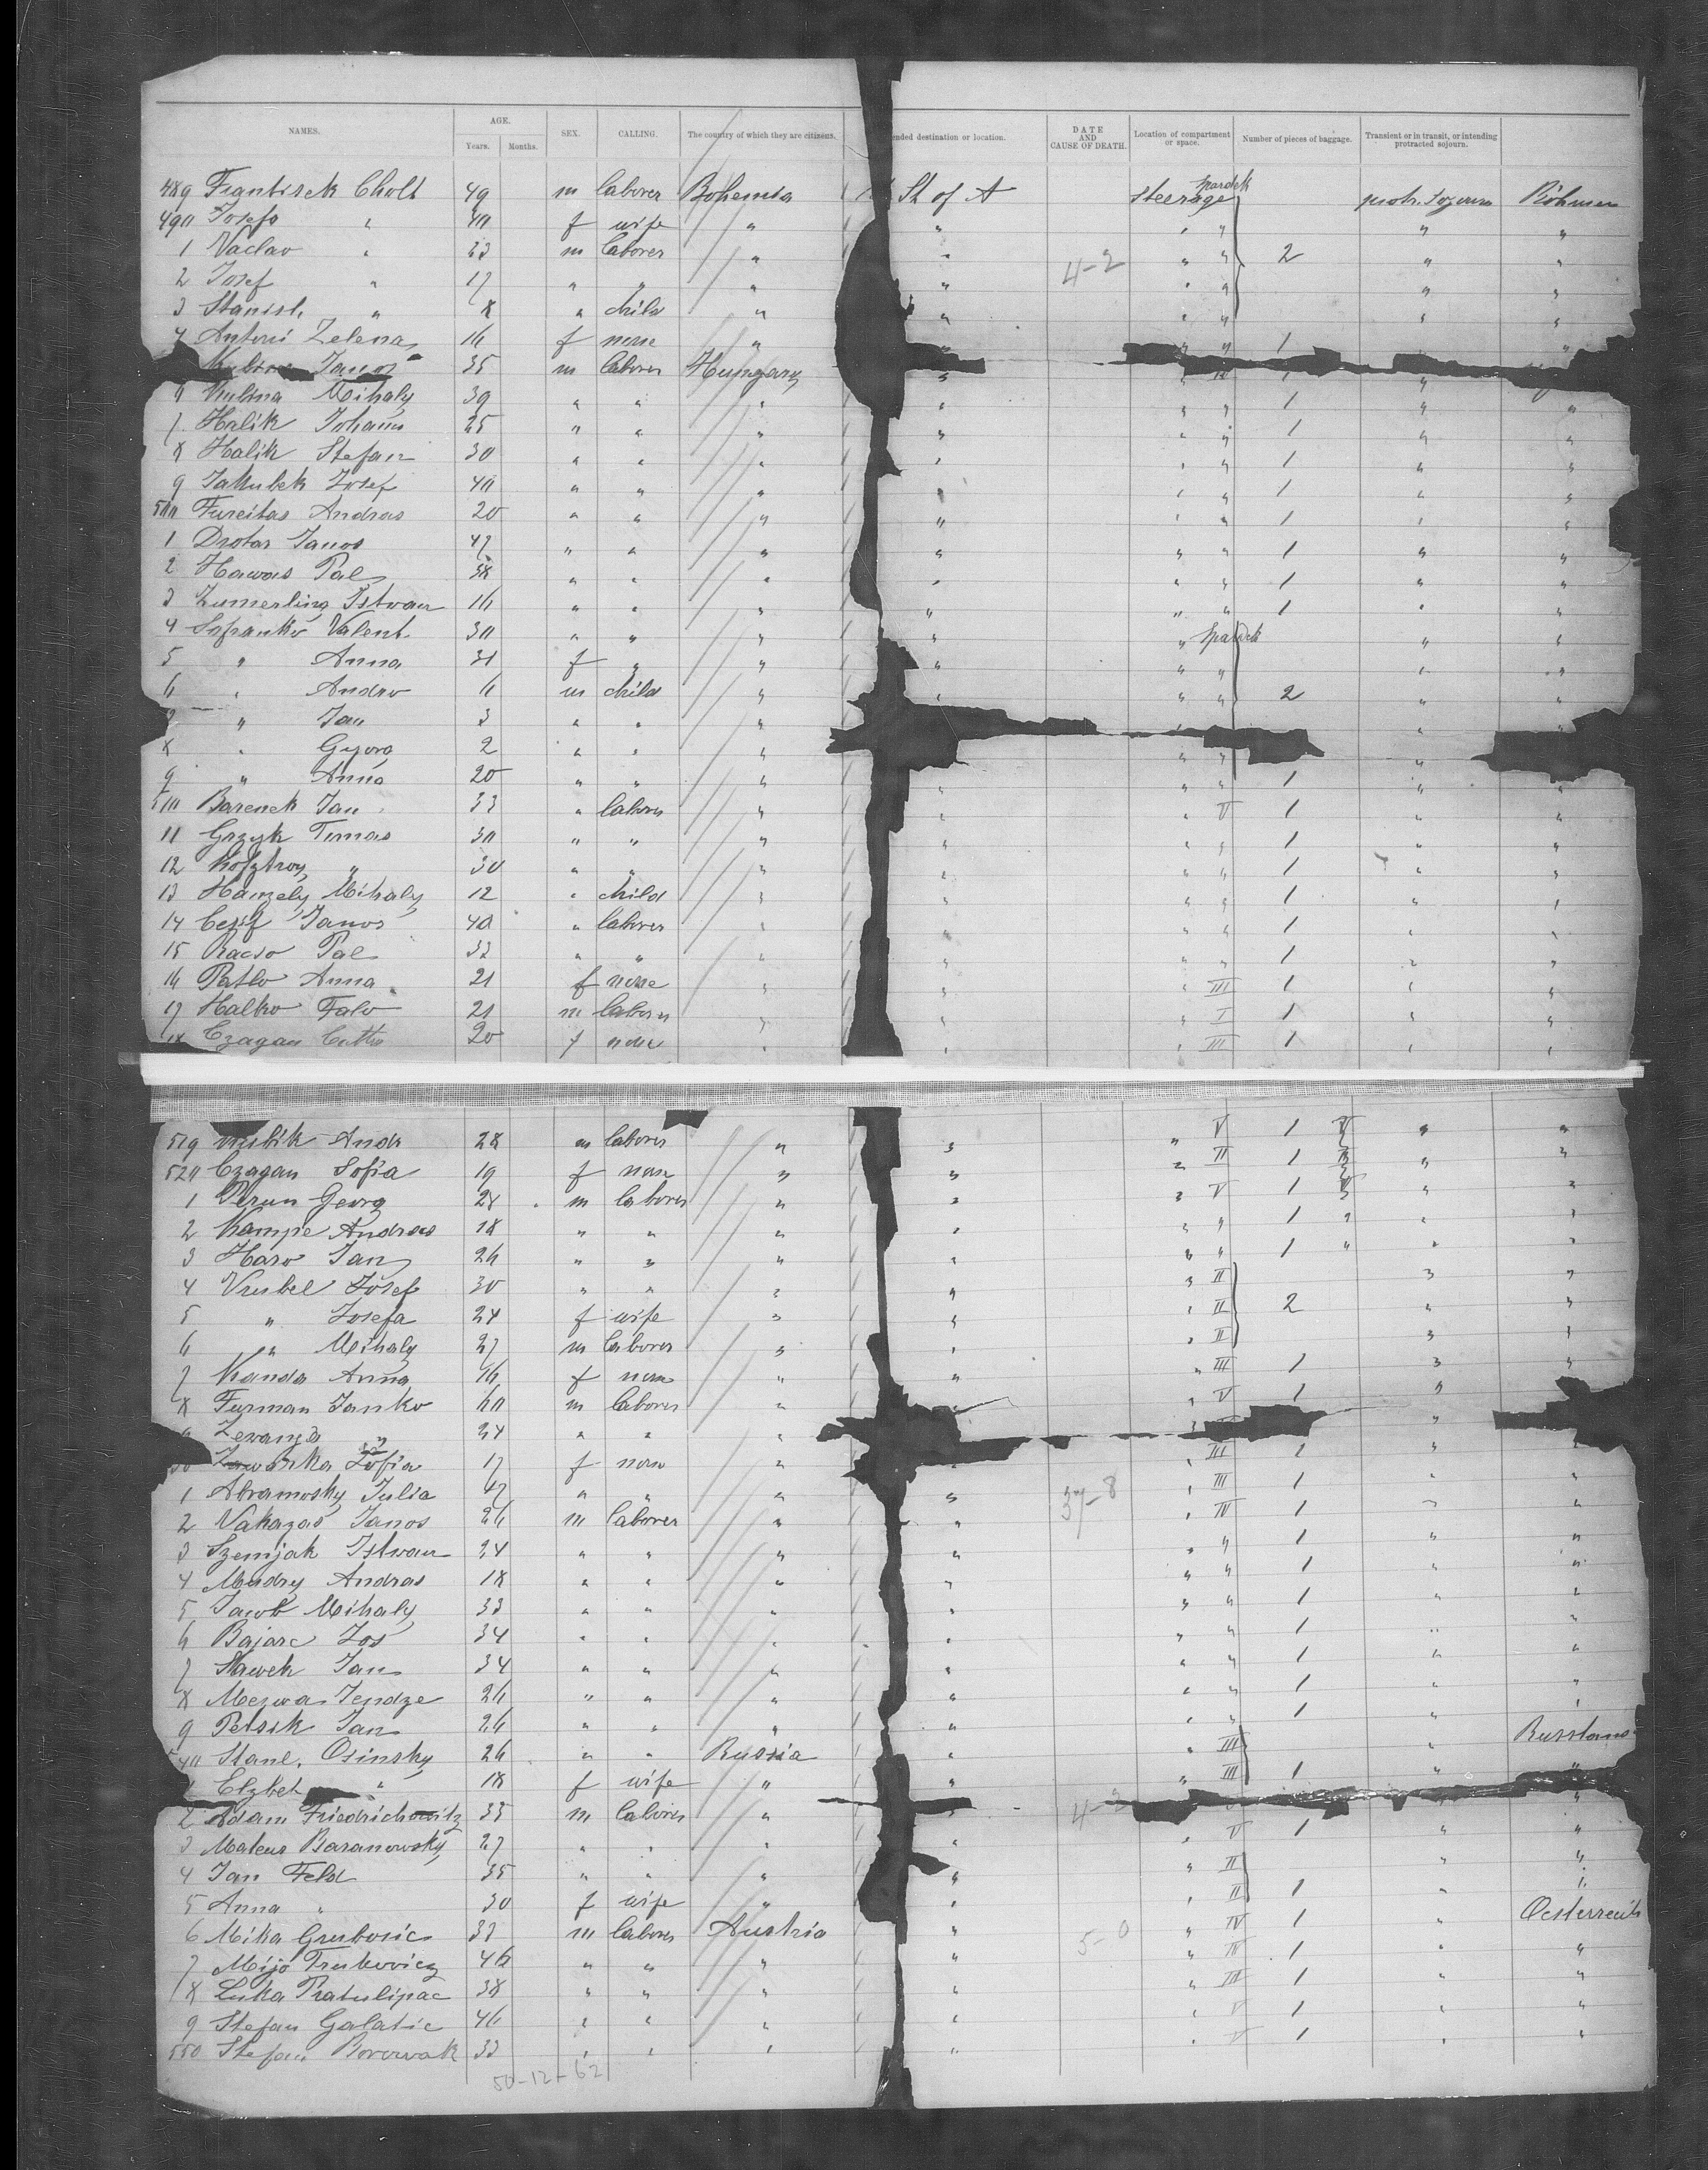 NAMES. AGE. Years. Months. SEX. CALLING. The country of which they are citizens. ended destination or location. DATE AND CAUSE OF DEATH. Location of compartment or space. Number of pieces of baggage. Transient or in transit, or intending protracted sojourn.
489 Frantisek Cholt 49 m laborer Bohemia St of A Steerage spardek protr. Sojourn Böhmen
490 Josefa " 40 f wife " " " " " "
1 Vaclav " 23 m laborer " " " " 2 " "
2 Josef " 17 " " " " 4-2 " " " "
3 Stanisl. " 8 " child " " " " " "
4 Antoni Zelena 16 f none " " " " 1 "
Janos 35 m laborer Hungary " "
6 Kulina Mihaly 39 " " " " " " 1 " "
7 Halik Johann 25 " " " " " " 1 " "
8 Halik Stefan 30 " " " " " " 1 " "
9 Jakubek Josef 40 " " " " " " 1 " "
500 Fureitas Andras 20 " " " " " " 1 " "
1 Drotar Janos 47 " " " " " " 1 " "
2 Hawas Pal 38 " " " " " " 1 " "
3 Zumerling Istwan 16 " " " " " " 1 " "
4 Sofranko Valent. 30 " " " " " spardek " "
5 " Anna 31 f " " " " " " "
6 " Andro 6 m child " " " " 2 " "
7 " Jan 3 " " " " "
8 " Gyorg 2 " " " " " "
9 " Anna 20 " " " " " " 1 " "
510 Barenek Jan 33 " laborer " " " V 1 " "
11 Grzyk Tomas 30 " " " " " " 1 " "
12 " 30 " " " " " " 1 " "
13 Hanzely Mihaly 12 " child " " " " 1 " "
14 Janos 40 " laborer " " " " 1 " "
15 Racso Pal 32 " " " " " " 1 " "
16 Patlo Anna 21 f none " " " III 1 " "
17 Halko Falo 21 m laborer " " " I 1 " "
18 Czagan 20 f none " " " III 1 " "
519 Andr 28 m laborer " " " V 1 " "
520 Czagan Sofia 19 f none " " " III 1 " "
1 Perun Georg 28 m laborer " " " V 1 " "
2 Kampe Andras 18 " " " " " " 1 " " "
3 Haro Jan 26 " " " " " " 1 " " "
4 Vrubel Josef 30 " " " " " II " "
5 " Josefa 24 f wife " " " II 2 " "
6 " Mihaly 27 m laborer " " " II " "
7 Kanda Anna 16 f none " " " III 1 " "
8 Furman Janko 60 m laborer " " " V 1 "
9 " 24 " " " "
30 Zofia 17 f none " " " III 1 " "
1 Abramosky Julia 47 " " " " 37-8 " III 1 " "
2 Vakazas Janos 26 m laborer " " " IV 1 " "
3 Szemjak Istwan 24 " " " " " " 1 " "
4 Mudry Andras 18 " " " " " " 1 " "
5 Jacob Mihaly 33 " " " " " " 1 " "
6 Bajarc Jos 34 " " " " " " 1 " "
7 Slawek Jan 34 " " " " " " 1 " "
8 Mezwa Jendze 26 " " " " " " 1 " "
9 Petsik Jan 26 " " " " " " 1 " "
540 Stanl. Osinsky 26 " " Russia " " III " Russland
1 Elzbet " 18 f wife " " " III 1 " "
2 Adam Friedrichowitz 35 m laborer " " 4-3
3 Mateus Baranowsky 27 " " " " " V 1 " "
4 Jan Feld 35 " " " " " II " "
5 Anna " 30 f wife " " " II 1 " "
6 Mika Grubosic 33 m laborer Austria " 5-0 " IV 1 " Oesterreich
7 Mijo Trukovicz 46 " " " " " IV 1 " "
8 Luka Pratulipac 38 " " " " " III 1 " "
9 Stefan Galatic 46 " " " " " V 1 " "
550 Stefan Borowak 33 " " " " " V 1 " "
50-12-62